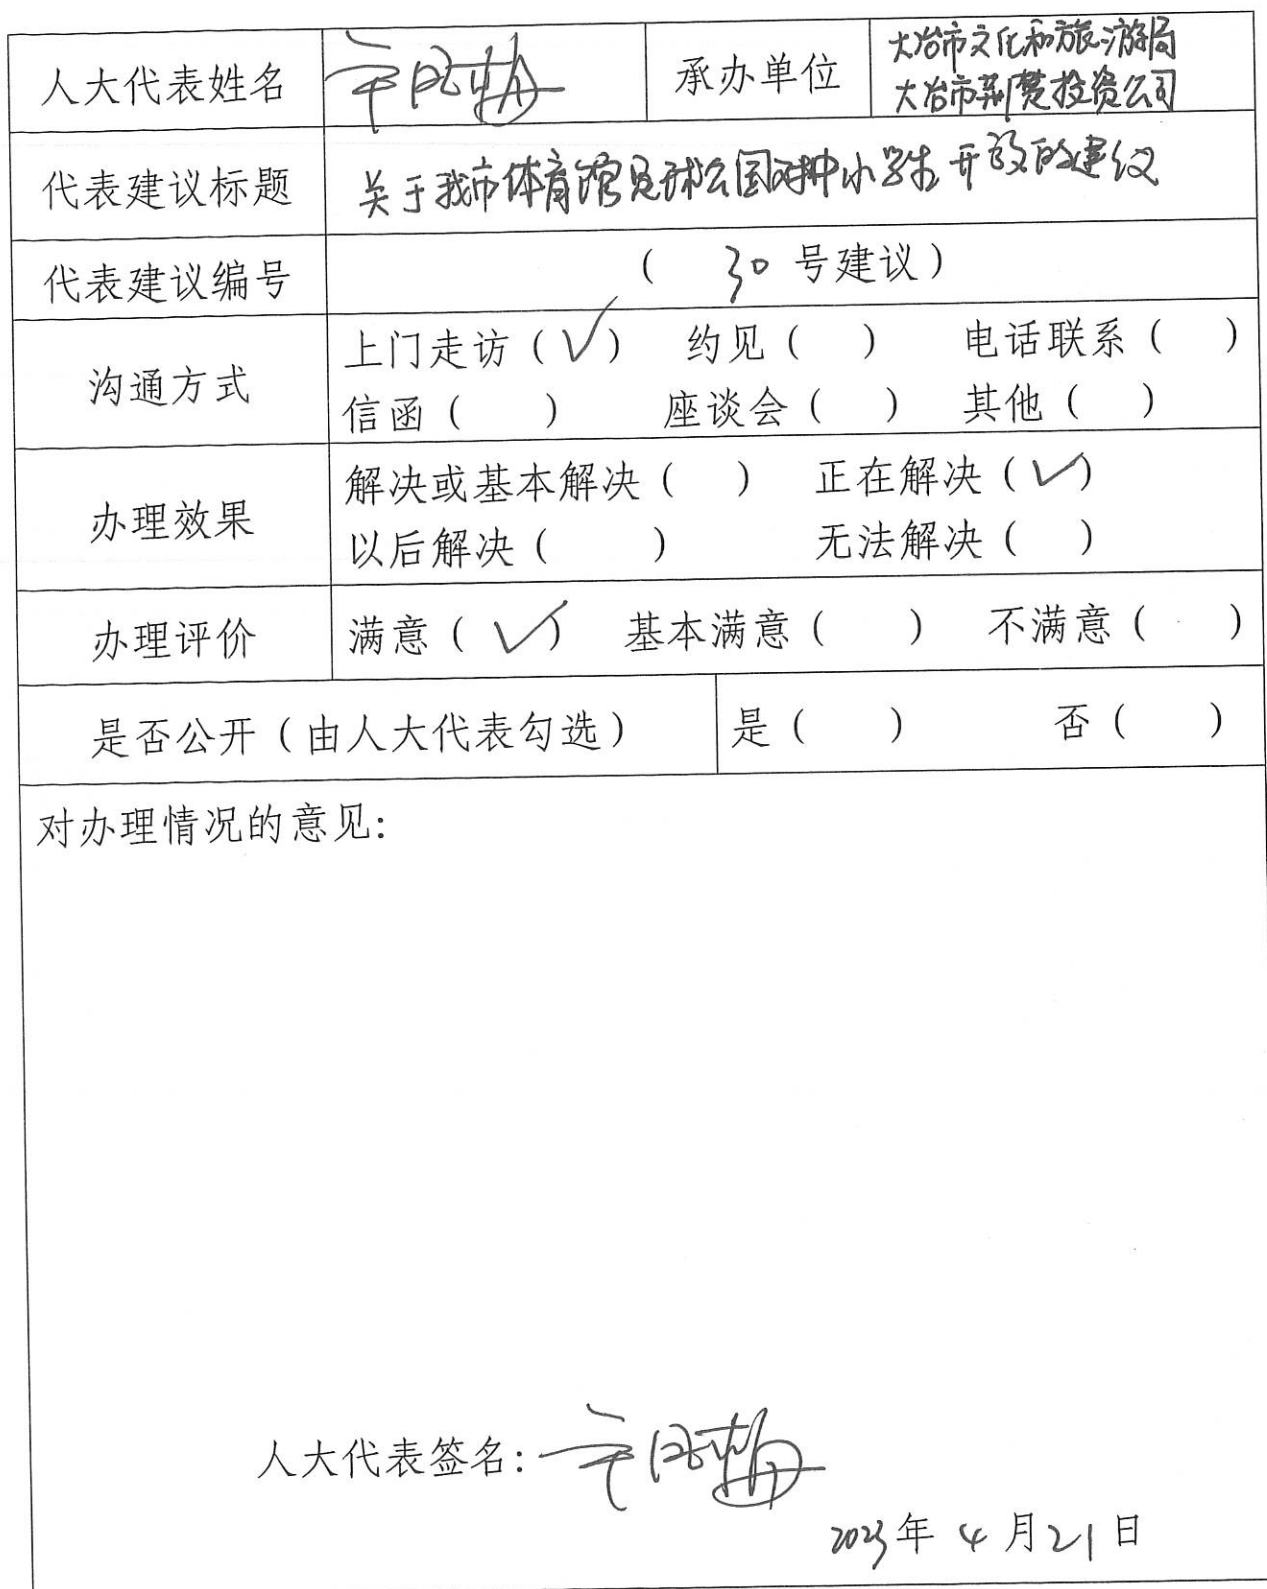 人大代表姓名
承办单位
大冶市文化和旅游局
大冶市荆楚投资公司
代表建议标题
关于我市体育馆足球公园对中小学生开放的建议
代表建议编号
( 30 号建议)
沟通方式
上门走访(√) 约见( ) 电话联系( )
信函( ) 座谈会( ) 其他( )
办理效果
解决或基本解决( ) 正在解决(√)
以后解决( ) 无法解决( )
办理评价
满意(√) 基本满意( ) 不满意( )
是否公开(由人大代表勾选)
是( ) 否( )
对办理情况的意见:
人大代表签名:
2023年 4 月21日